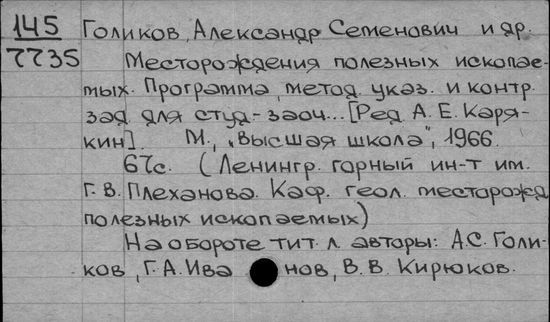 145 Голиков, Александр Семенович и др.
7735 Месторождения полезных ископае-
мых. Программа, метод. указ. и контр.
зад. для студ.-заоч... [Ред. А. Е. Каря-
кин]. М., „Высшая школа", 1966.
67с. (Ленингр. горный ин-т им.
Г. В. Плеханова. Каф. геол. месторожд.
полезных ископаемых)
На обороте тит. л. авторы: А.С. Голи-
ков, Г. А. Ива нов, В. В. Кирюков.